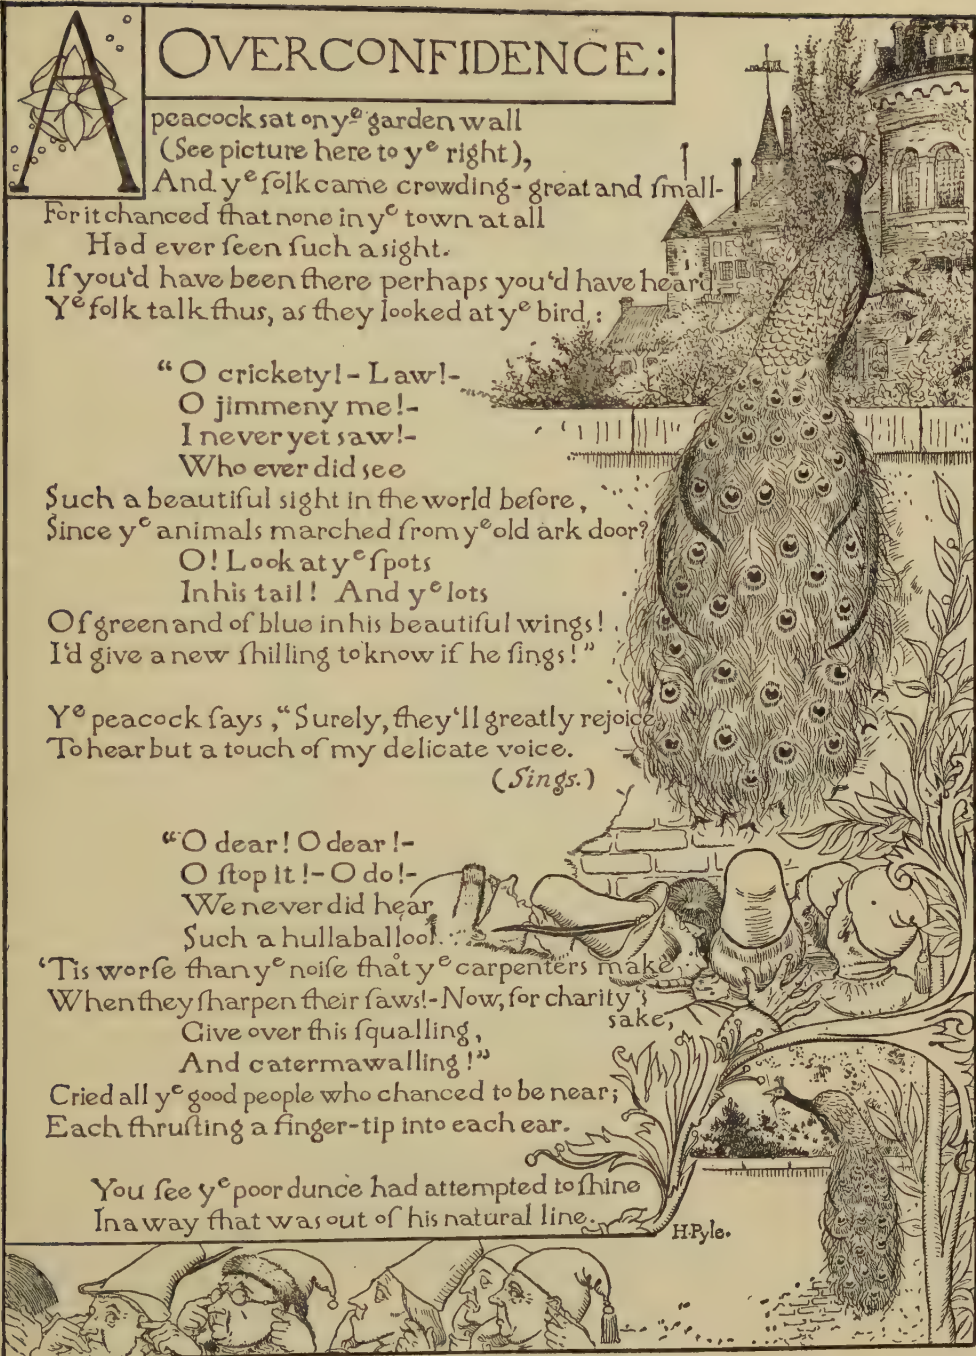 OVERCONFIDENCE:
A peacock sat on yᵉ garden wall
(See picture here to yᵉ right),
And yᵉ folk came crowding-great and ſmall-
For it chanced that none in yᵉ town at all
Had ever ſeen ſuch a sight.
If you'd have been there perhaps you'd have heard
Yᵉ folk talk thus, as they looked at yᵉ bird,:
“O crickety!-Law!-
O jimmeny me!-
I never yet saw!-
Who ever did see
Such a beautiful sight in the world before,
Since yᵉ animals marched from yᵉ old ark door?
O! Look at yᵉ ſpots
In his tail! And yᵉ lots
Of green and of blue in his beautiful wings!
I'd give a new ſhilling to know if he ſings!”
Yᵉ peacock ſays, “Surely, they'll greatly rejoice
To hear but a touch of my delicate voice.
(Sings.)
“O dear! O dear!-
O ſtop it!-O do!-
We never did hear
Such a hullaballoo!
'Tis worſe than yᵉ noiſe that yᵉ carpenters make
When they ſharpen their ſaws!-Now, for charity's
sake,
Give over this ſqualling,
And catermawalling!”
Cried all yᵉ good people who chanced to be near;
Each thruſting a finger-tip into each ear.
You ſee yᵉ poor dunce had attempted to ſhine
In a way that was out of his natural line.
H.Pyle.